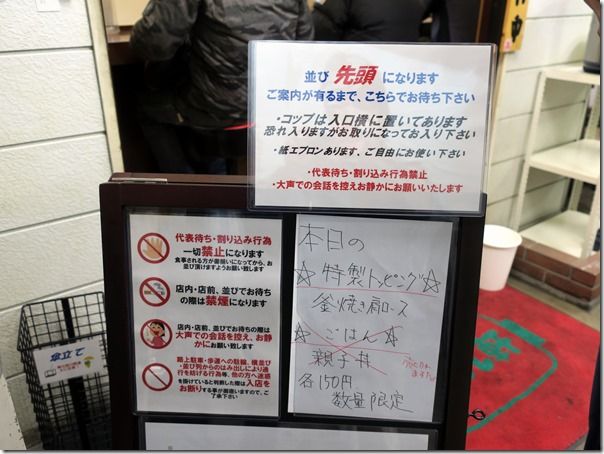 並び 先頭 になります
ご案内が有るまで、こちらでお待ち下さい
・コップは入口横に置いてあります
恐れ入りますがお取りになってお入り下さい
・紙エプロンあります、ご自由にお使い下さい
・代表待ち・割り込み行為禁止
・大声での会話を控えお静かにお願いいたします
代表待ち・割り込み行為
一切禁止になります
食事される方が御揃いになってから、お
並び頂けますようお願い致します
店内・店前、並びでお待ち
の際は禁煙になります
店内・店前、並びでお待ちの際は
大声での会話を控え、お静
かにお願い致します
路上駐車・歩道への駐輪、横並び
・並び列からのはみ出しにより通
行を妨げる行為等、他の方へ迷惑
を掛けていると判断した際は入店を
お断りする事が御座いますので、ご
了承下さい
本日の
☆特製トッピング☆
釜焼き肩ロース
☆ごはん☆
親子丼
各150円
数量限定
傘立て